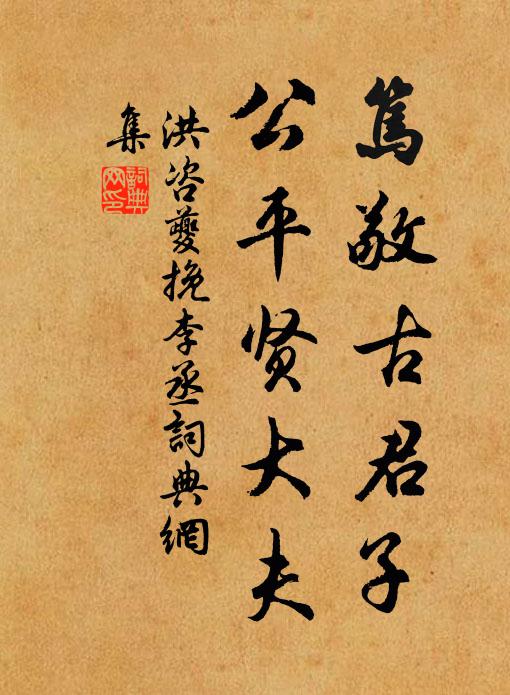 笃敬古君子
公平贤大夫
洪咨夔挽李丞詞典網
集
詞典
网印